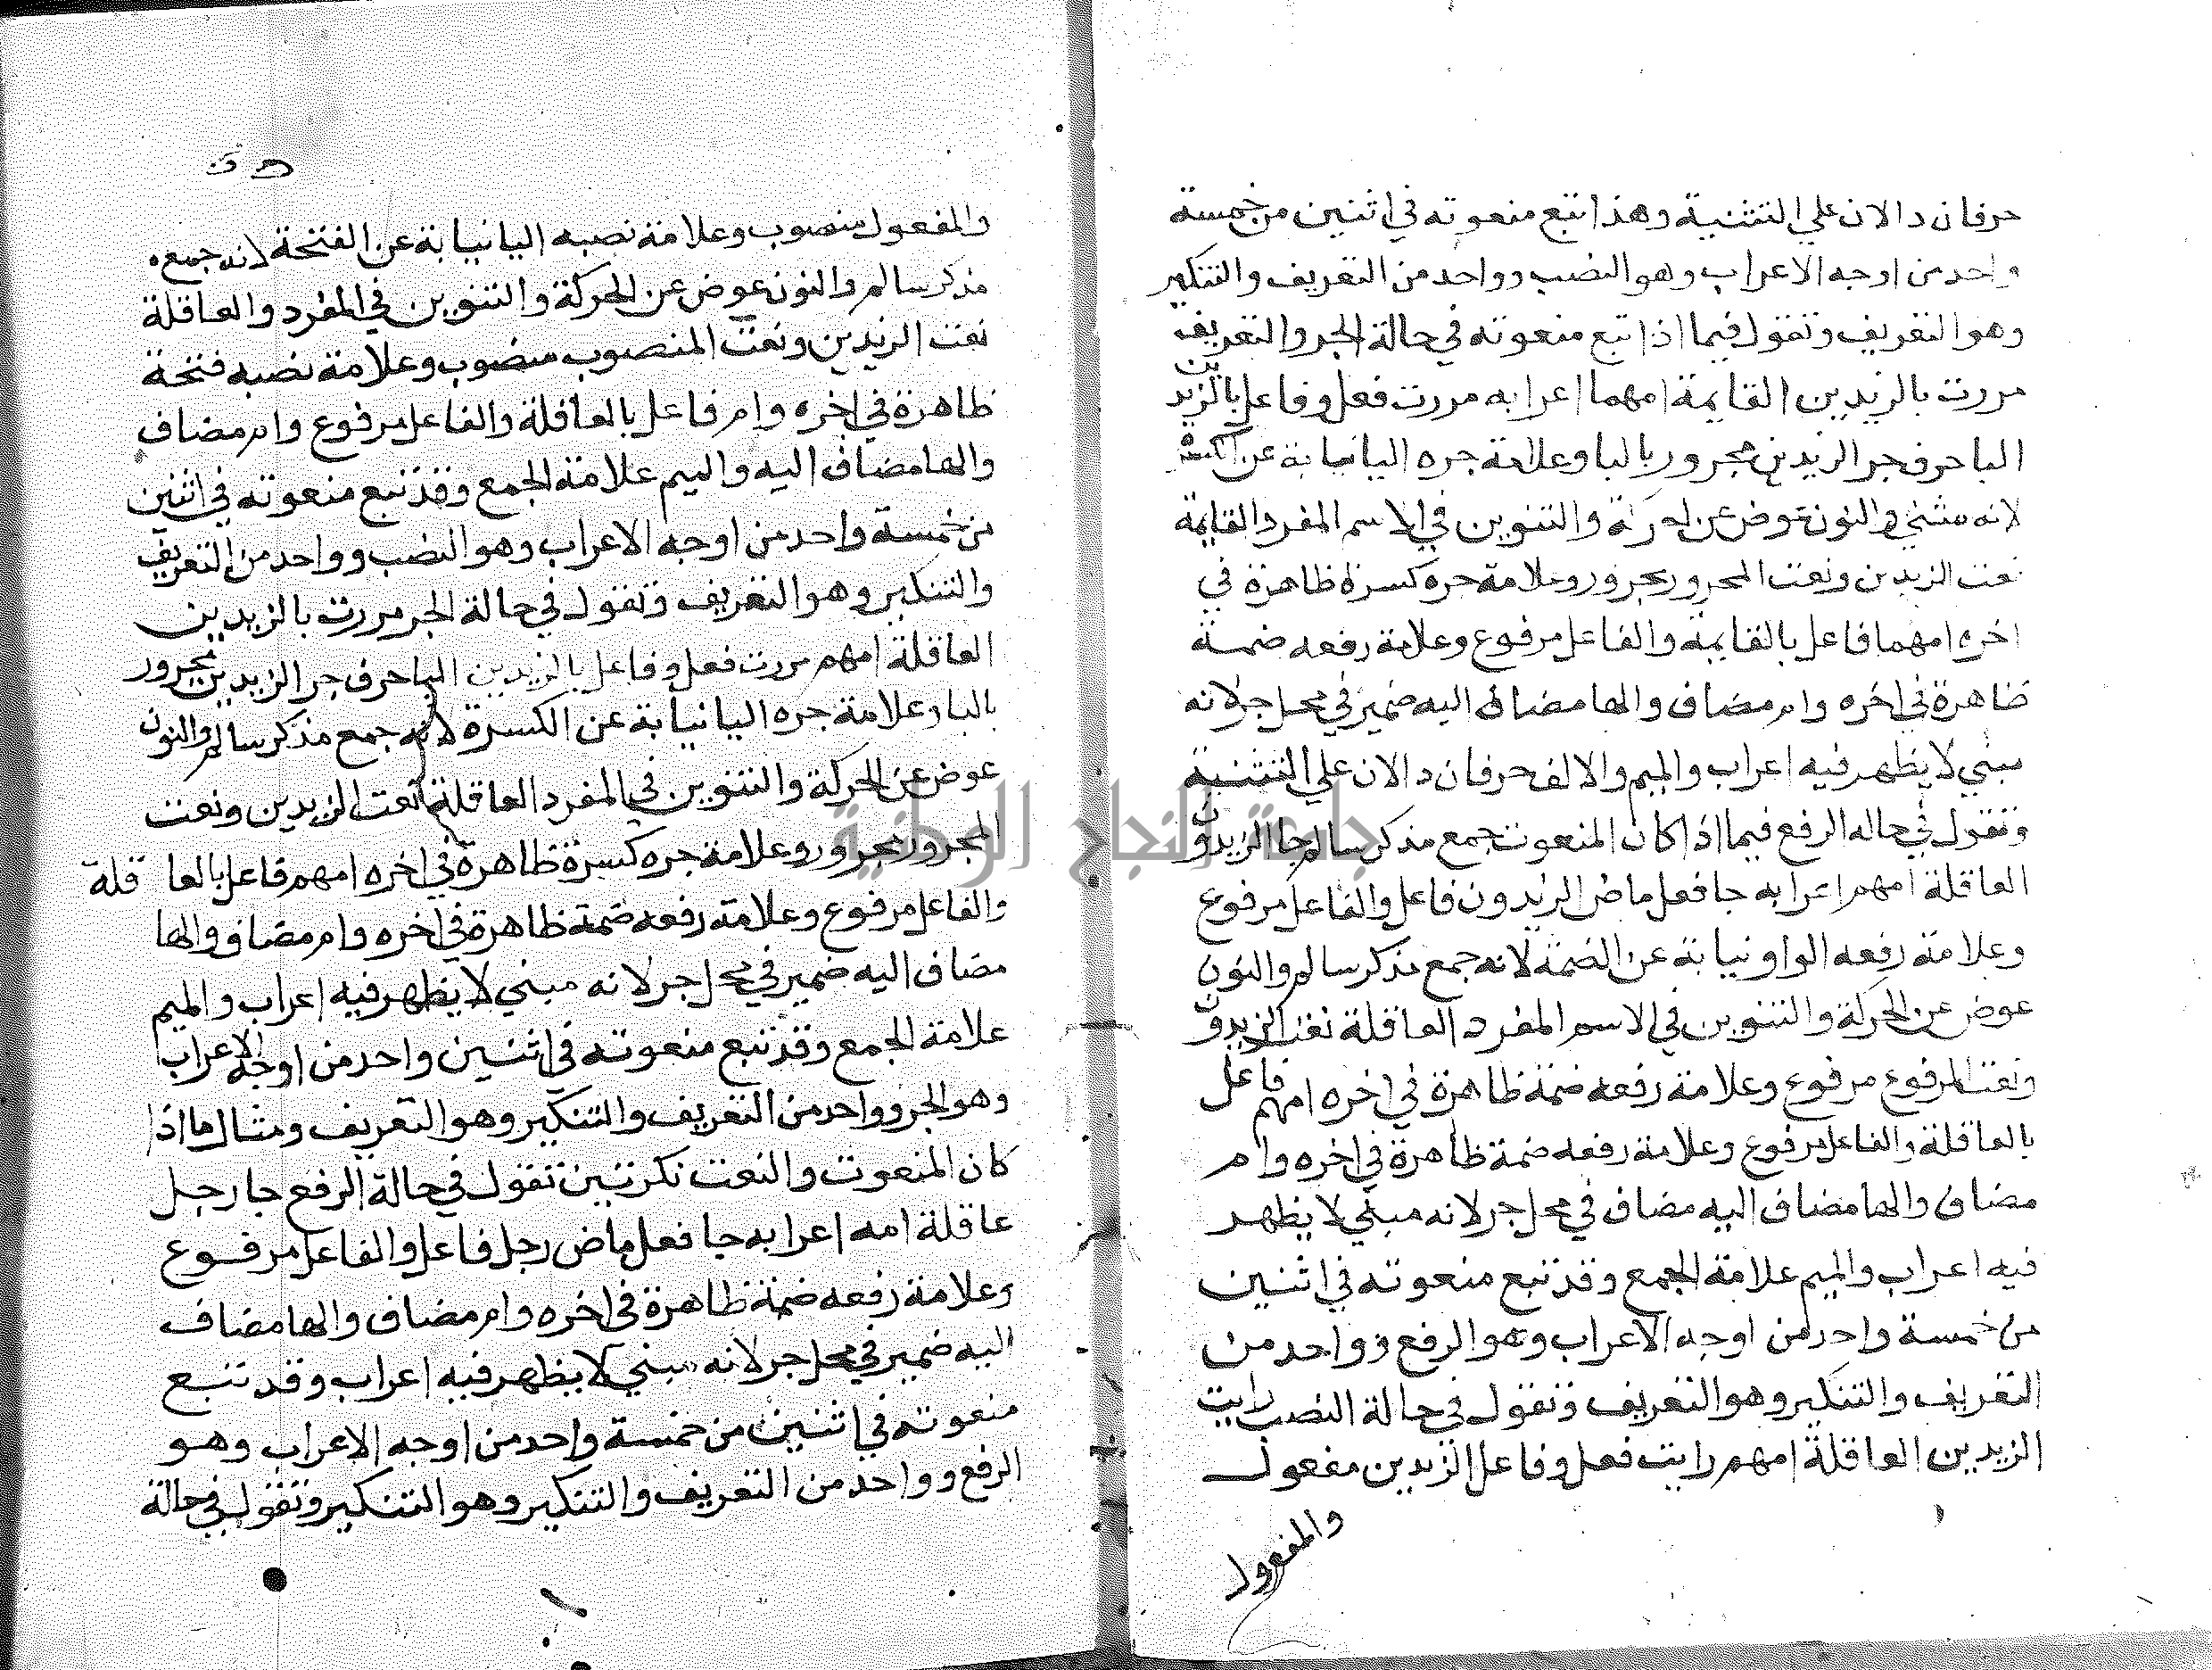 حرفان دالان علي التثنية وهذا تبع منعوته في اثنين من خمسة
واحد من اوجه الاعراب وهو النصب وواحد من التعريف والتنكير
وهو التعريف وتقول فيما اذا تبع منعوته في حالة الجر والتعريف
مررت بالزيدين القايمة امهما اعرابه مررت فعل وفاعل بالزيدين
البا حرف جر الزيدين مجرور بالبا وعلامة جره اليا نيابة عن الكسرة
لانه مثني والنون عوض عن الحركة والتنوين في الاسم المفرد القايمة
نعت الزيدين ونعت المجرور مجرور وعلامة جره كسرة ظاهرة في
اخره امهما فاعل بالقايمة والفاعل مرفوع وعلامة رفعه ضمة
ظاهرة في اخره وام مضاف والها مضاف اليه ضمير في محل جر لانه
مبني لا يظهر فيه اعراب والميم والالف حرفان دالان علي التثنية
وتقول في حاله الرفع فيما اذا كان المنعوت جمع مذكر سالم جا الزيدون
العاقلة امهم اعرابه جا فعل ماض الزيدون فاعل والفاعل مرفوع
وعلامة رفعه الواو نيابة عن الضمة لانه جمع مذكر سالم والنون
عوض عن الحركة والتنوين في الاسم المفرد العاقلة نعت الزيدون
ونعت المرفوع مرفوع وعلامة رفعه ضمة ظاهرة في اخره امهم فاعل
بالعاقلة والفاعل مرفوع وعلامة رفعه ضمة ظاهرة في اخره وام
مضاف والها مضاف اليه مضاف في محل جر لانه مبني لا يظهر
فيه اعراب والميم علامة الجمع وقد تبع منعوته في اثنين
من خمسة واحد من اوجه الاعراب وهو الرفع وواحد من
التعريف والتنكير وهو التعريف وتقول في حالة النصب رايت
الزيدين العاقلة امهم رايت فعل وفاعل الزيدين مفعول
والمفعول
والمفعول منصوب وعلامة نصبه اليا نيابة عن الفتحة لانه جمع
مذكر سالم والنون عوض عن الحركة والتنوين في المفرد والعاقلة
نعت الزيدين ونعت المنصوب منصوب وعلامة نصبه فتحة
ظاهرة في اخره وام فاعل بالعاقلة والفاعل مرفوع وام مضاف
والها مضاف اليه والميم علامة الجمع وقد تبع منعوته في اثنين
من خمسة واحد من اوجه الاعراب وهو النصب وواحد من التعريف
والتنكير وهو التعريف وتقول في حالة الجر مررت بالزيدين
العاقلة امهم مررت فعل وفاعل بالزيدين البا حرف جر الزيدين مجرور
بالبا وعلامة جره اليا نيابة عن الكسرة لانه جمع مذكر سالم والنون
عوض عن الحركة والتنوين في المفرد العاقلة نعت الزيدين ونعت
المجرور مجرور وعلامة جره كسرة ظاهرة في اخره امهم فاعل بالعا قلة
والفاعل مرفوع وعلامة رفعه ضمة ظاهرة في اخره وام مضاف والها
مضاف اليه ضمير في محل جر لانه مبني لا يظهر فيه اعراب والميم
علامة الجمع وقد تبع منعوته في اثنين واحد من اوجه الاعراب
وهو الجر وواحد من التعريف والتنكير وهو التعريف ومثال ما اذا
كان المنعوت والنعت نكرتين تقول في حالة الرفع جا رجل
عاقلة امه اعرابه جا فعل ماض رجل فاعل والفاعل مرفوع
وعلامة رفعه ضمة ظاهرة في اخره وام مضاف والها مضاف
اليه ضمير في محل جر لانه مبني لا يظهر فيه اعراب وقد تبع
منعوته في اثنين من خمسة واحد من اوجه الاعراب وهو
الرفع وواحد من التعريف والتنكير وهو التنكير وتقول في حالة
جامعة النجاح الوطنية